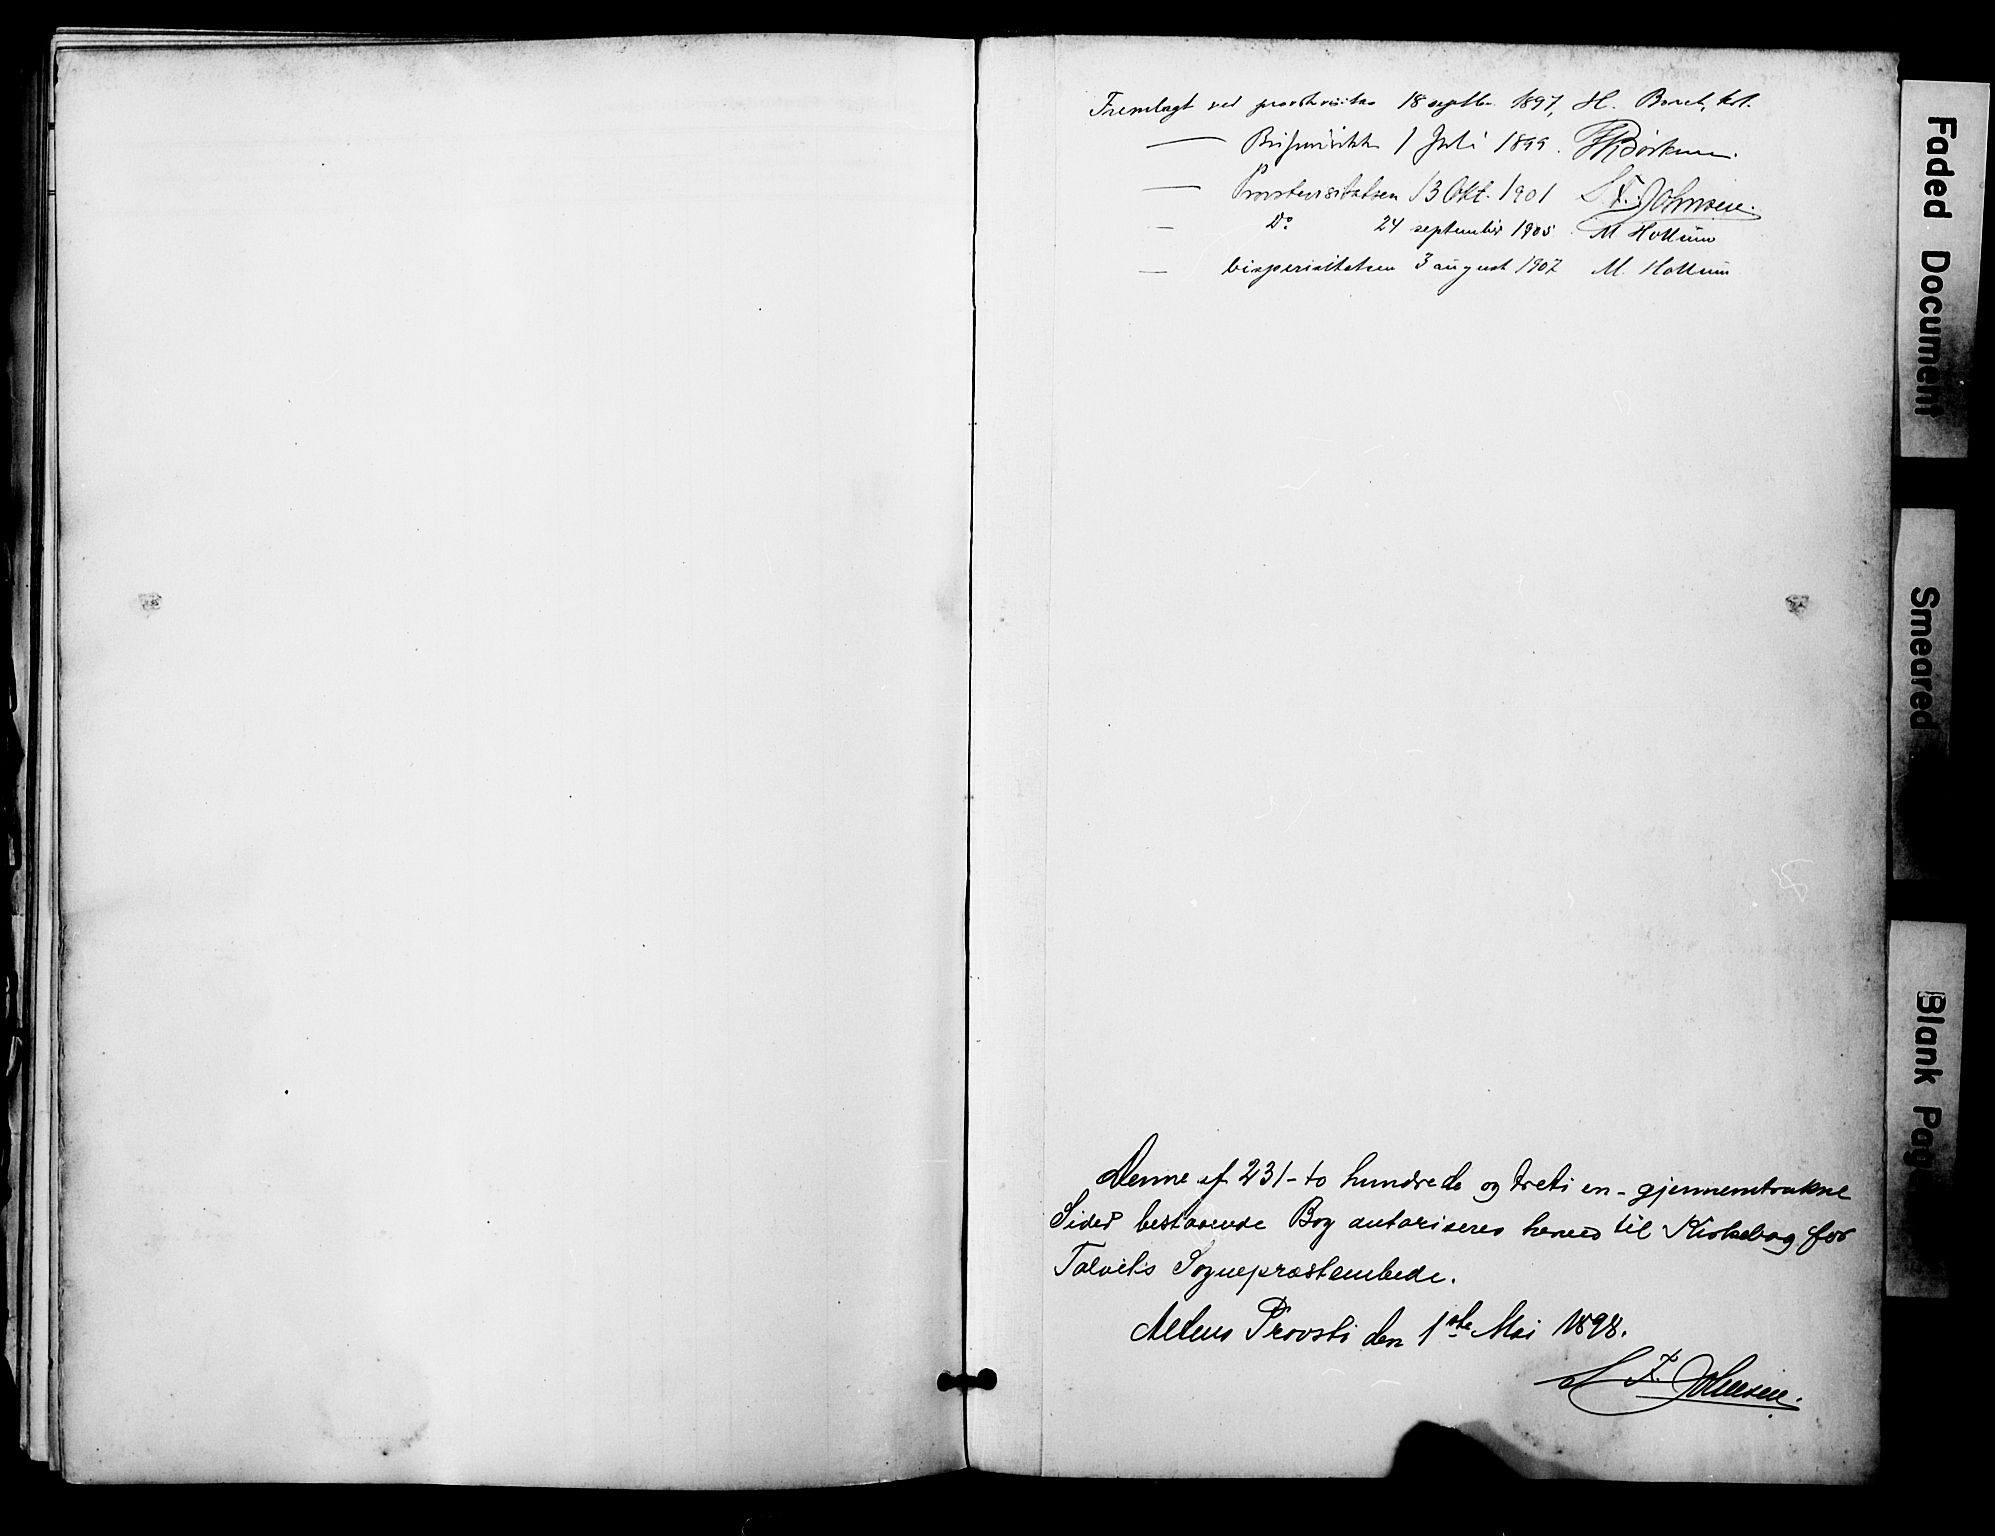 Fremlagt ved provstevisitas 18 septbr. 1897, H.
— 1 Juli 1899.
— Provstevisitatsen 13 Okt. 1901 S. F. Johnsen.
— Do 24 september 1905 M Hollum
— bispevisitatsen 3 august 1907 M. Hollum
Denne af 231 - to hundrede og treti en - gjennemtrukne
Sider bestaaende Bog autoriseres herved til Kirkebog for
Talviks Sogneprestembede.
Altens Provsti den 1ste Mai 1898.
S F. Johnsen.
Faded Document
Smeared
Blank Pag